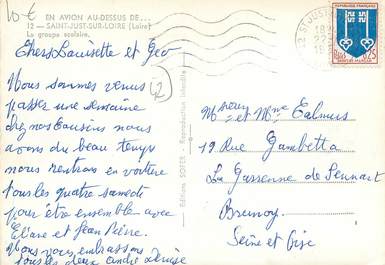 10 €
EN AVION AU-DESSUS DE...
12 — SAINT-JUST-SUR-LOIRE (Loire)
Le groupe scolaire.
Chers Louisette et Géo
Nous sommes venus
passer une semaine
chez nos Cousins nous
avons du beau temps
nous rentrons en voiture
tous les quatre samedi
pour être ensemble avec
Eliane et Jean Pierre.
Nous vous embrassons
tous les deux André Denise
42
Editions SOFER - Reproduction interdite
42 ST JUST
REPUBLIQUE FRANÇAISE
0,25
MONT-DE-MARSAN
Msieur et Mme
19 Rue Gambetta
La Garenne de Sennart
Brunoy
Seine et Oise